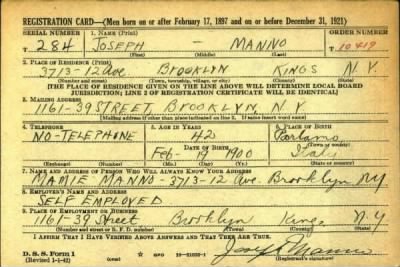 REGISTRATION CARD—(Men born on or after February 17, 1897 and on or before December 31, 1921)
SERIAL NUMBER 1. NAME (Print) ORDER NUMBER
T 284 JOSEPH — MANNO T 10419
(First) (Middle) (Last)
2. PLACE OF RESIDENCE (Print)
3713-12 Ave. BROOKLYN KINGS N.Y.
(Number and street) (Town, township, village, or city) (County) (State)
[THE PLACE OF RESIDENCE GIVEN ON THE LINE ABOVE WILL DETERMINE LOCAL BOARD
JURISDICTION; LINE 2 OF REGISTRATION CERTIFICATE WILL BE IDENTICAL]
3. MAILING ADDRESS
1161-39 STREET, BROOKLYN, N.Y.
[Mailing address if other than place indicated on line 2. If same insert word same]
4. TELEPHONE 5. AGE IN YEARS 6. PLACE OF BIRTH
NO-TELEPHONE 42
DATE OF BIRTH (Town or county)
Feb- 19 1900
(Exchange) (Number) (Mo.) (Day) (Yr.) (State or country)
7. NAME AND ADDRESS OF PERSON WHO WILL ALWAYS KNOW YOUR ADDRESS
MAMIE MANNO-3713-12 Ave. Brooklyn NY
8. EMPLOYER'S NAME AND ADDRESS
SELF EMPLOYED
9. PLACE OF EMPLOYMENT OR BUSINESS
1161-39 Street Brooklyn Kings N.Y
(Number and street or R. F. D. number) (Town) (County) (State)
I AFFIRM THAT I HAVE VERIFIED ABOVE ANSWERS AND THAT THEY ARE TRUE.
D. S. S. Form 1
(Revised 1-1-42) (over) GPO Joseph Manno
(Registrant's signature)